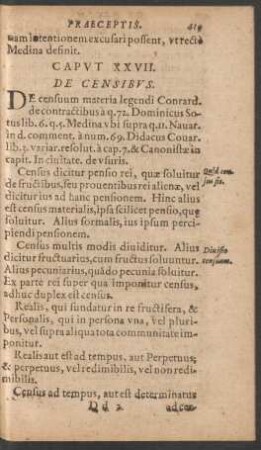 PRAECEPTIS. 419
nam intentionem excusari possent, vt rectè
Medina definit.
CAPVT XXVII.
DE CENSIBVS.
DE censuum materia legendi Conrard.
de contractibus à q. 72. Dominicus So-
tus lib. 6. q. 5. Medina vbi supra q. 11. Nauar.
in d. comment. à num. 69. Didacus Couar.
lib. 3. variar. resolut. à cap. 7. & Canonistæ in
capit. In ciuitate. de vsuris.
Census dicitur pensio rei, quæ soluitur
de fructibus, seu prouentibus rei alienæ, vel
dicitur ius ad hanc pensionem. Hinc alius
est census materialis, ipsa scilicet pensio, quę
soluitur. Alius formalis, ius ipsum perci-
piendi pensionem.
Quid cen-
sus sit.
Census multis modis diuiditur. Alius
dicitur fructuarius, cum fructus soluuntur.
Alius pecuniarius, quādo pecunia soluitur.
Ex parte rei super qua imponitur census,
adhuc duplex est census.
Diuisio
censuum.
Realis, qui fundatur in re fructifera, &
Personalis, qui in persona vna, vel pluri-
bus, vel supra aliqua tota communitate im-
ponitur.
Realis aut est ad tempus, aut Perpetuus;
& perpetuus, vel redimibilis, vel non redi-
mibilis.
Census ad tempus, aut est determinatus
Dd 2